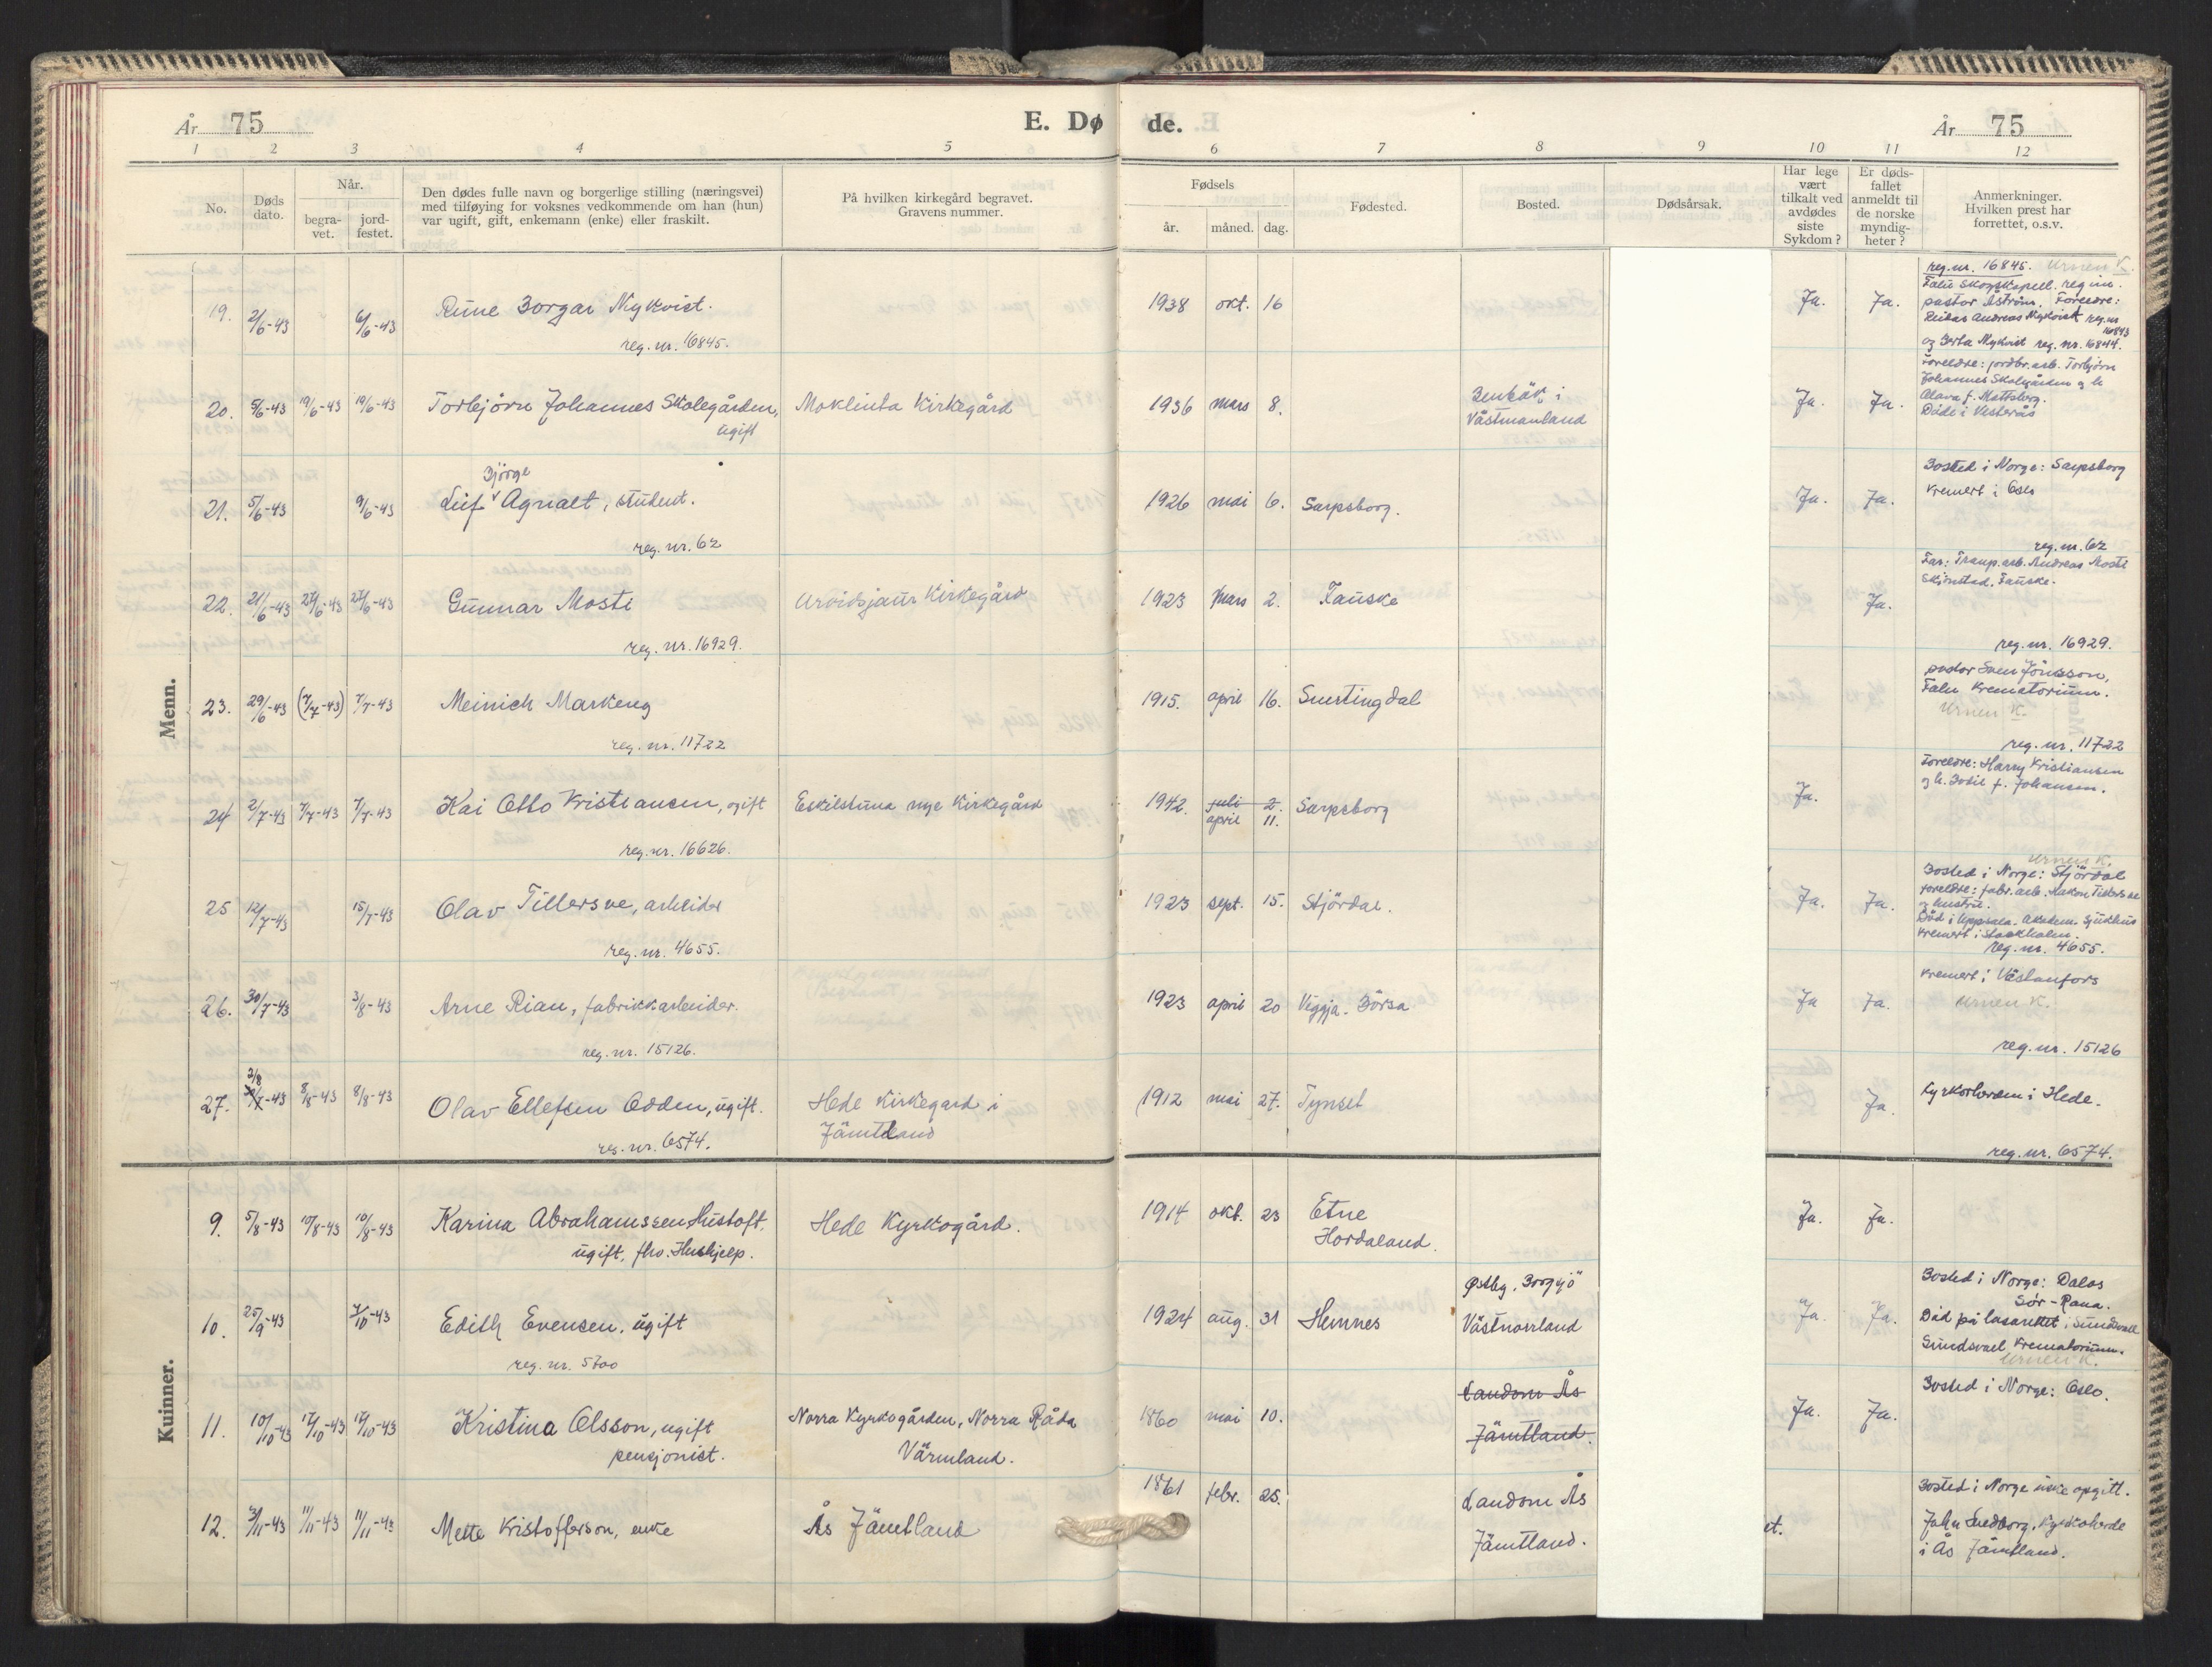 År 75
E. Dø de.
År 75
1 2 3 4 5 6 7 8 9 10 11 12
No.
Døds dato.
Når.
begra-vet.
jord-festet.
Den dødes fulle navn og borgerlige stilling (næringsvei)
med tilføying for voksnes vedkommende om han (hun)
var ugift, gift, enkemann (enke) eller fraskilt.
På hvilken kirkegård begravet.
Gravens nummer.
Fødsels
år. måned. dag.
Fødested.
Bosted.
Dødsårsak.
Har lege
vært
tilkalt ved
avdødes
siste
Sykdom?
Er døds-
fallet
anmeldt til
de norske
myndig-
heter?
Anmerkninger.
Hvilken prest har
forrettet, o.s.v.
Menn.
19. 2/6-43 6/6-43 Rune Borgar Nykvist. 1938 okt. 16 Ja. Ja.
reg. nr. 16845.
reg. nr. 16845. Urnen K.
Falu Skogskapell. reg in.
pastor Åström. Foreldre:
Andreas Nykvist reg. nr
16843
og Berta Nykvist reg. nr. 16844.
20. 5/6-43 19/6-43 19/6-43 Torbjörn Johannes Skolegården, Moklinta Kirkegård 1936 mars 8. Ja. Ja.
ugift
i
Västmanland
Foreldre: jordbr.arb. Torbjörn
Johannes Skolegården og h
f. Mattsborg.
Död i Vesterås
21. 5/6-43 9/6-43 Leif Bjørge Agnalt, student. 1926 mai 6. Sarpsborg. Ja. Ja.
reg. nr. 62
Bosted i Norge: Sarpsborg
Kremert i Oslo
reg. nr. 62
22. 21/6-43 27/6-43 27/6-43 Gunnar Mosti Arvidsjaur Kirkegård 1923 Mars 2. Fauske Ja.
reg. nr. 16929.
Far: Transp.arb. Andreas Mosti
Skjönstad. Fauske.
reg. nr. 16929.
23. 29/6-43 (7/7-43) 7/7-43 Meinich Markeng 1915. april 16. Snertingdal
reg. nr. 11722
pastor Sven Jönsson,
Falu Krematorium.
Urnen K.
reg. nr. 11722
24 2/7-43 7/7-43 7/7-43 Kai Otto Kristiansen, ugift Eskilstuna nye Kirkegård 1942. juli 2. Sarpsborg Ja.
april 11.
reg. nr. 16626.
Foreldre: Harry Kristiansen
og h. Bodil f. Johansen.
25 12/7-43 15/7-43 Olav Tillersve, arbeider 1923 sept. 15. Stjördal. Ja. Ja.
reg. nr. 4655.
Urnen K.
Bosted i Norge: Stjördal
foreldre: fabr. arb. Hakon Tillersve
og hustru.
Död i Uppsala. Akadem. Sjukhus
Kremert i Stockholm.
reg. nr. 4655.
26. 30/7-43 3/8-43 Arne Rian, fabrikkarbeider. 1923 april 20 Viggja. Börsa Ja Ja.
reg. nr. 15126.
Kremert i Västanfors
Urnen K.
reg. nr. 15126
27. 2/8 -43 8/8-43 8/8-43 Olav Ellefsen Odden, ugift. Hede Kirkegard i 1912 mai 27. Tynset Ja.
reg. nr. 6574. Jämtland
Kyrkoherden i Hede.
reg. nr. 6574.
Kvinner.
9. 5/8-43 10/8-43 10/8-43 Karina Abrahamssen Hustoft. Hede Kyrkogård. 1914 okt. 23 Etne Ja. Ja.
ugift, fhv. Hushjelp. Hordaland.
10. 25/9-43 7/10-43 Edith Evensen. ugift 1924 aug. 31 Hemnes Ja. Ja.
reg. nr. 5700
Østby, Borgsjö
Västnorrland
Bosted i Norge: Dalos
Sör-Rana.
Död på lasarettet i Sundsvall
Sundsvall Krematorium.
Urnen K.
11. 10/10-43 17/10-43 17/10-43 Kristina Olsson, ugift Norra Kyrkogården, Norra Råda 1860 mai 10. Landom Ås Ja. Ja.
pensjonist. Värmland. Jämtland.
Bosted i Norge: Oslo.
12. 3/11-43 11/11-43 11/11-43 Mette Kristofferson, enke Ås Jämtland 1861 febr. 25. Landom Ås et.
Jämtland.
Bosted i Norge ikke opgitt.
John Lundborg. Kyrkoherde
i Ås Jämtland.